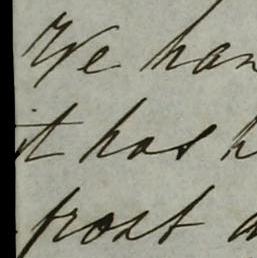 We hav
it has h
frost a